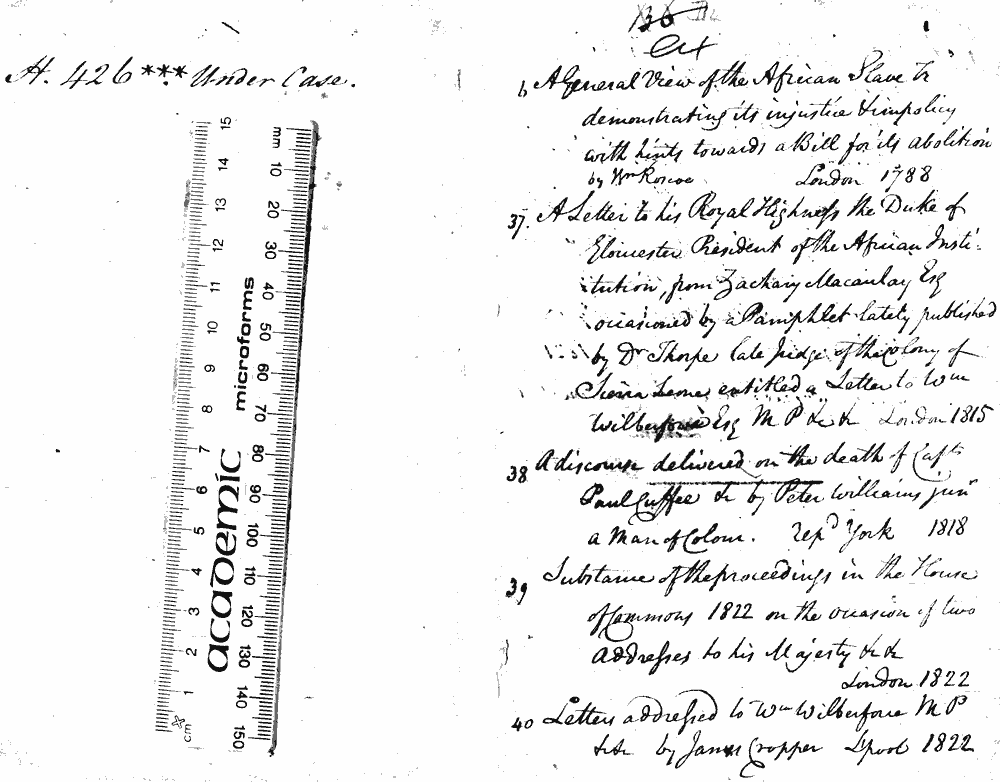 H. 426 *** Under Case.
mm 10 20 30 40 50 60 70 80 90 100 110 120 130 140 150
15 14 13 12 11 10 9 8 7 6 5 4 3 2 1 cm
academic microforms
136
6 A General View of the African Slave Tr
demonstrating its injustice & impolicy
with hints towards a Bill for its abolition
by Wm Roscoe London 1788
37. A Letter to his Royal Highness the Duke of
Gloucester President of the African Insti-
tution, from Zachary Macaulay Esq
occasioned by a Pamphlet lately published
by Dr Thorpe late Judge of the Colony of
Sierra Leone entitled a Letter to Wm
Wilberforce Esq M P &c &c London 1815
38 A discourse delivered on the death of Capt
Paul Cuffee &c by Peter Williams junr
a Man of Colour. York 1818
39 Substance of the proceedings in the House
of Commons 1822 on the occasion of two
Addresses to his Majesty &c &c
London 1822
40 Letters addressed to Wm Wilberforce M P
&c &c by James Cropper L'pool 1822